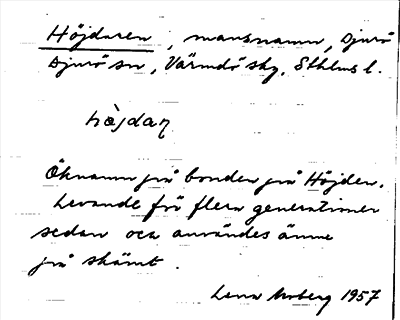 Höjdaren, mansnamn, Djurö
Djurö sn, Värmdö skg, Sthlms l.
hö̀jdaɽ
Öknamn på bonden på Höjden.
Levande för flera generationer
sedan och användes ännu
på skämt.
Lena Moberg 1957